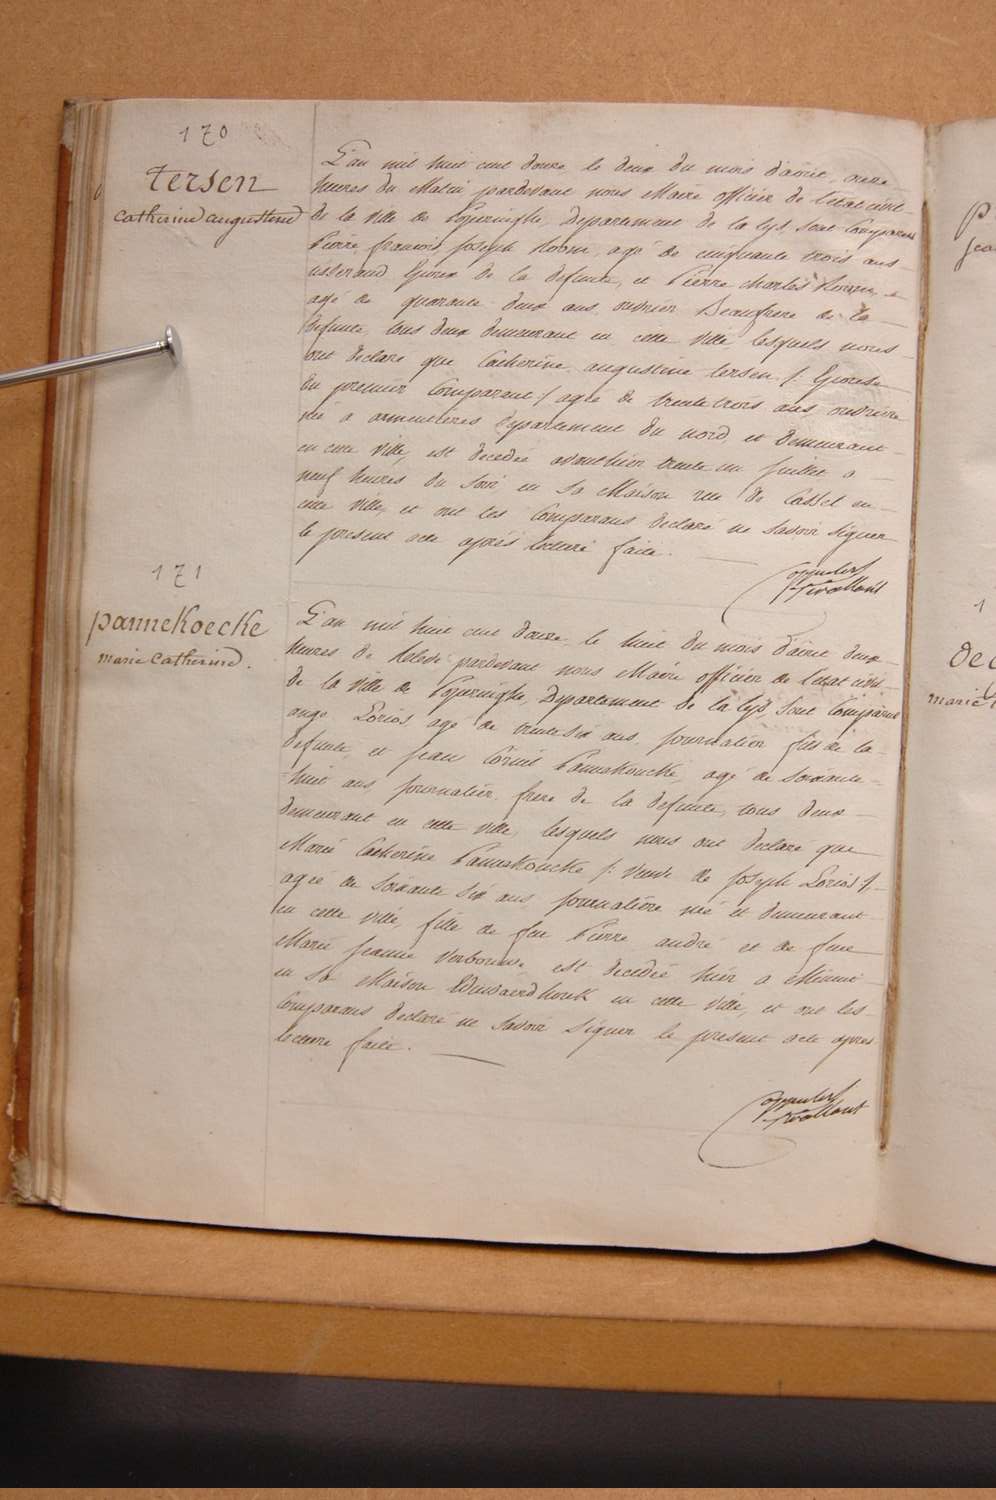 170
Tersen
catherine augustine
L'an mil huit cent douze le deux du mois d'aout, onze
heures du Matin pardevant nous Maire officier de l'etat civil
de la ville de Poperinghe, Departement de la Lys, sont Comparus
Pierre francois Joseph, agé de cinquante trois ans
tisserand Epoux de la defunte, et Pierre charles
agé de quarante deux ans, ouvrier Beaufrere de la
defunte, tous deux demeurant en cette ville lesquels nous
ont declaré que Catherine augustine tersen /: Epouse
du premier Comparant :/ agée de trente trois ans, ouvriere
née a armentieres Departement du nord, et demeurant
en cette ville, est decedée avanthier trente un Juillet a
neuf heures du soir, en sa Maison rue de Cassel en
cette ville, et ont les Comparans declaré ne savoir signer
le present acte aprés lecture faite.
171
pannekoecke
marie catherine.
L'an mil huit cent douze, le huit du mois d'aout deux
heures de Relevé pardevant nous Maire officier de l'etat civil
de la ville de Poperinghe, Departement de la Lys, sont Comparus
ange Lorios agé de trente six ans, journalier fils de la
defunte, et jean Pannekoucke, agé de soixante
huit ans journalier frere de la defunte, tous deux
demeurant en cette ville, lesquels nous ont declaré que
Marie Catherine Pannekoucke /: veuve de Joseph Lorios :/
agée de soixante six ans, journaliere née et demeurant
en cette ville, fille de feu Pierre andré et de feue
Marie Jeanne, est decedée hier a Minuit
en sa Maison en cette ville, et ont les
Comparans declaré ne savoir signer le present acte aprés
lecture faite.